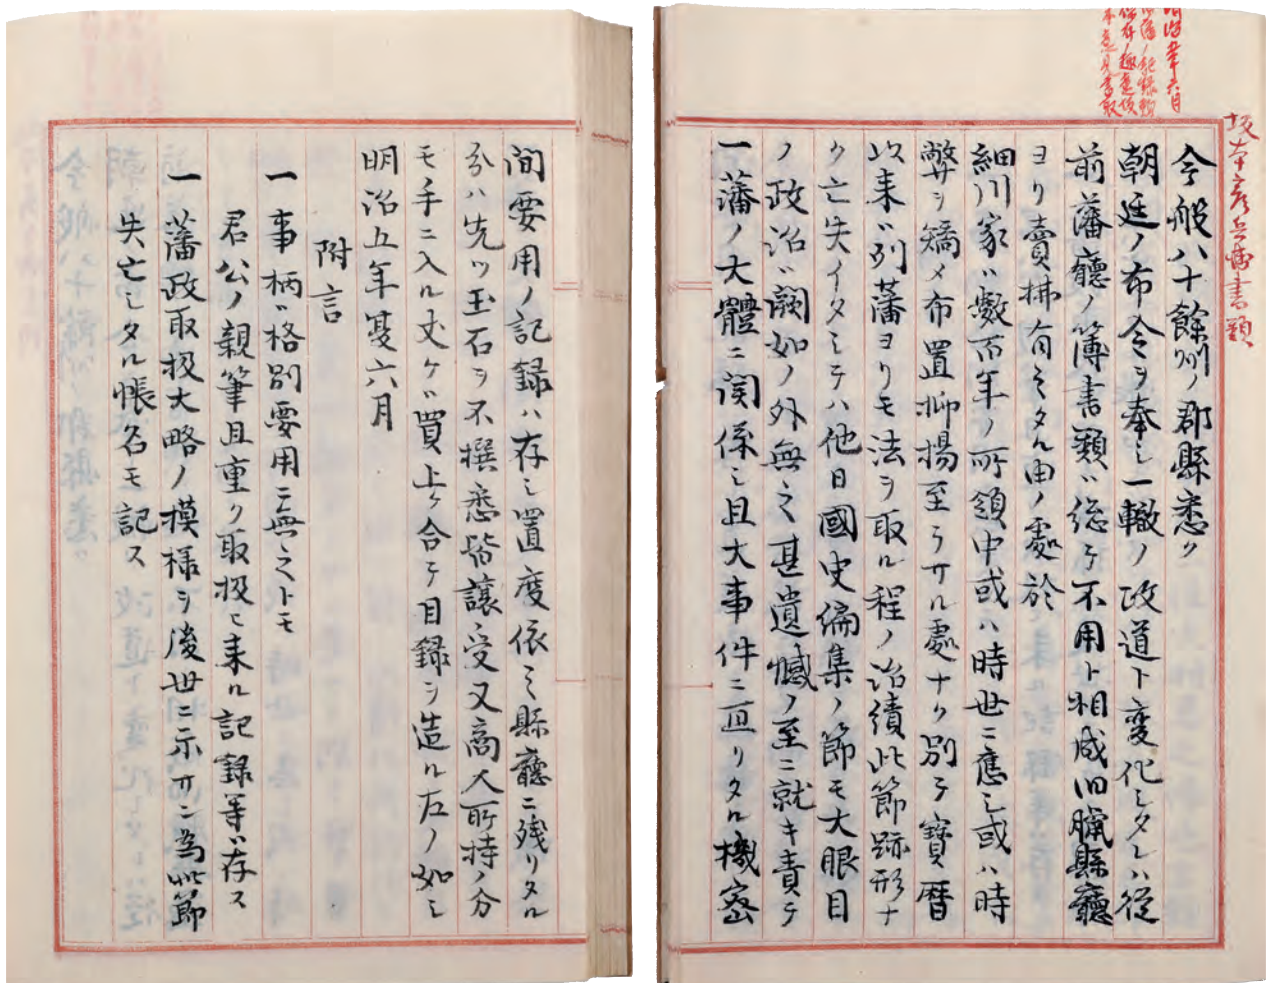 明治五年六月
坂本彦兵衛書類
今般八十餘州ノ郡縣悉ク
朝廷ノ布令ヲ奉シ一轍ノ政道ト変化シタレハ従
前藩廳ノ簿書類ハ総テ不用ト相成旧臘縣廳
ヨリ賣拂有之タル由ノ處於
細川家ハ數百年ノ所領中或ハ時世ニ應シ或ハ時
弊ヲ矯メ布置抑揚至ラサル處ナク別テ寶暦
以来ハ列藩ヨリモ法ヲ取ル程ノ治績此節跡形ナ
ク亡失イタシテハ他日國史編集ノ節モ大眼目
ノ政治ハ闕如ノ外無之甚遺憾ノ至ニ就キ責テ
一藩ノ大體ニ関係シ且大事件ニ亘リタル機密
間要用ノ記録ハ存シ置度依之縣廳ニ残リタル
分ハ先ツ玉石ヲ不撰悉皆譲受又商人所持ノ分
モ手ニ入ル丈ケハ買上ケ合テ目録ヲ造ル左ノ如シ
明治五年夏六月
附言
一事柄ハ格別要用ニ無之トモ
君公ノ親筆且重ク取扱ヒ来ル記録等ハ存ス
一藩政取扱大略ノ模様ヲ後世ニ示サン為此節
失亡シタル帳名モ記ス